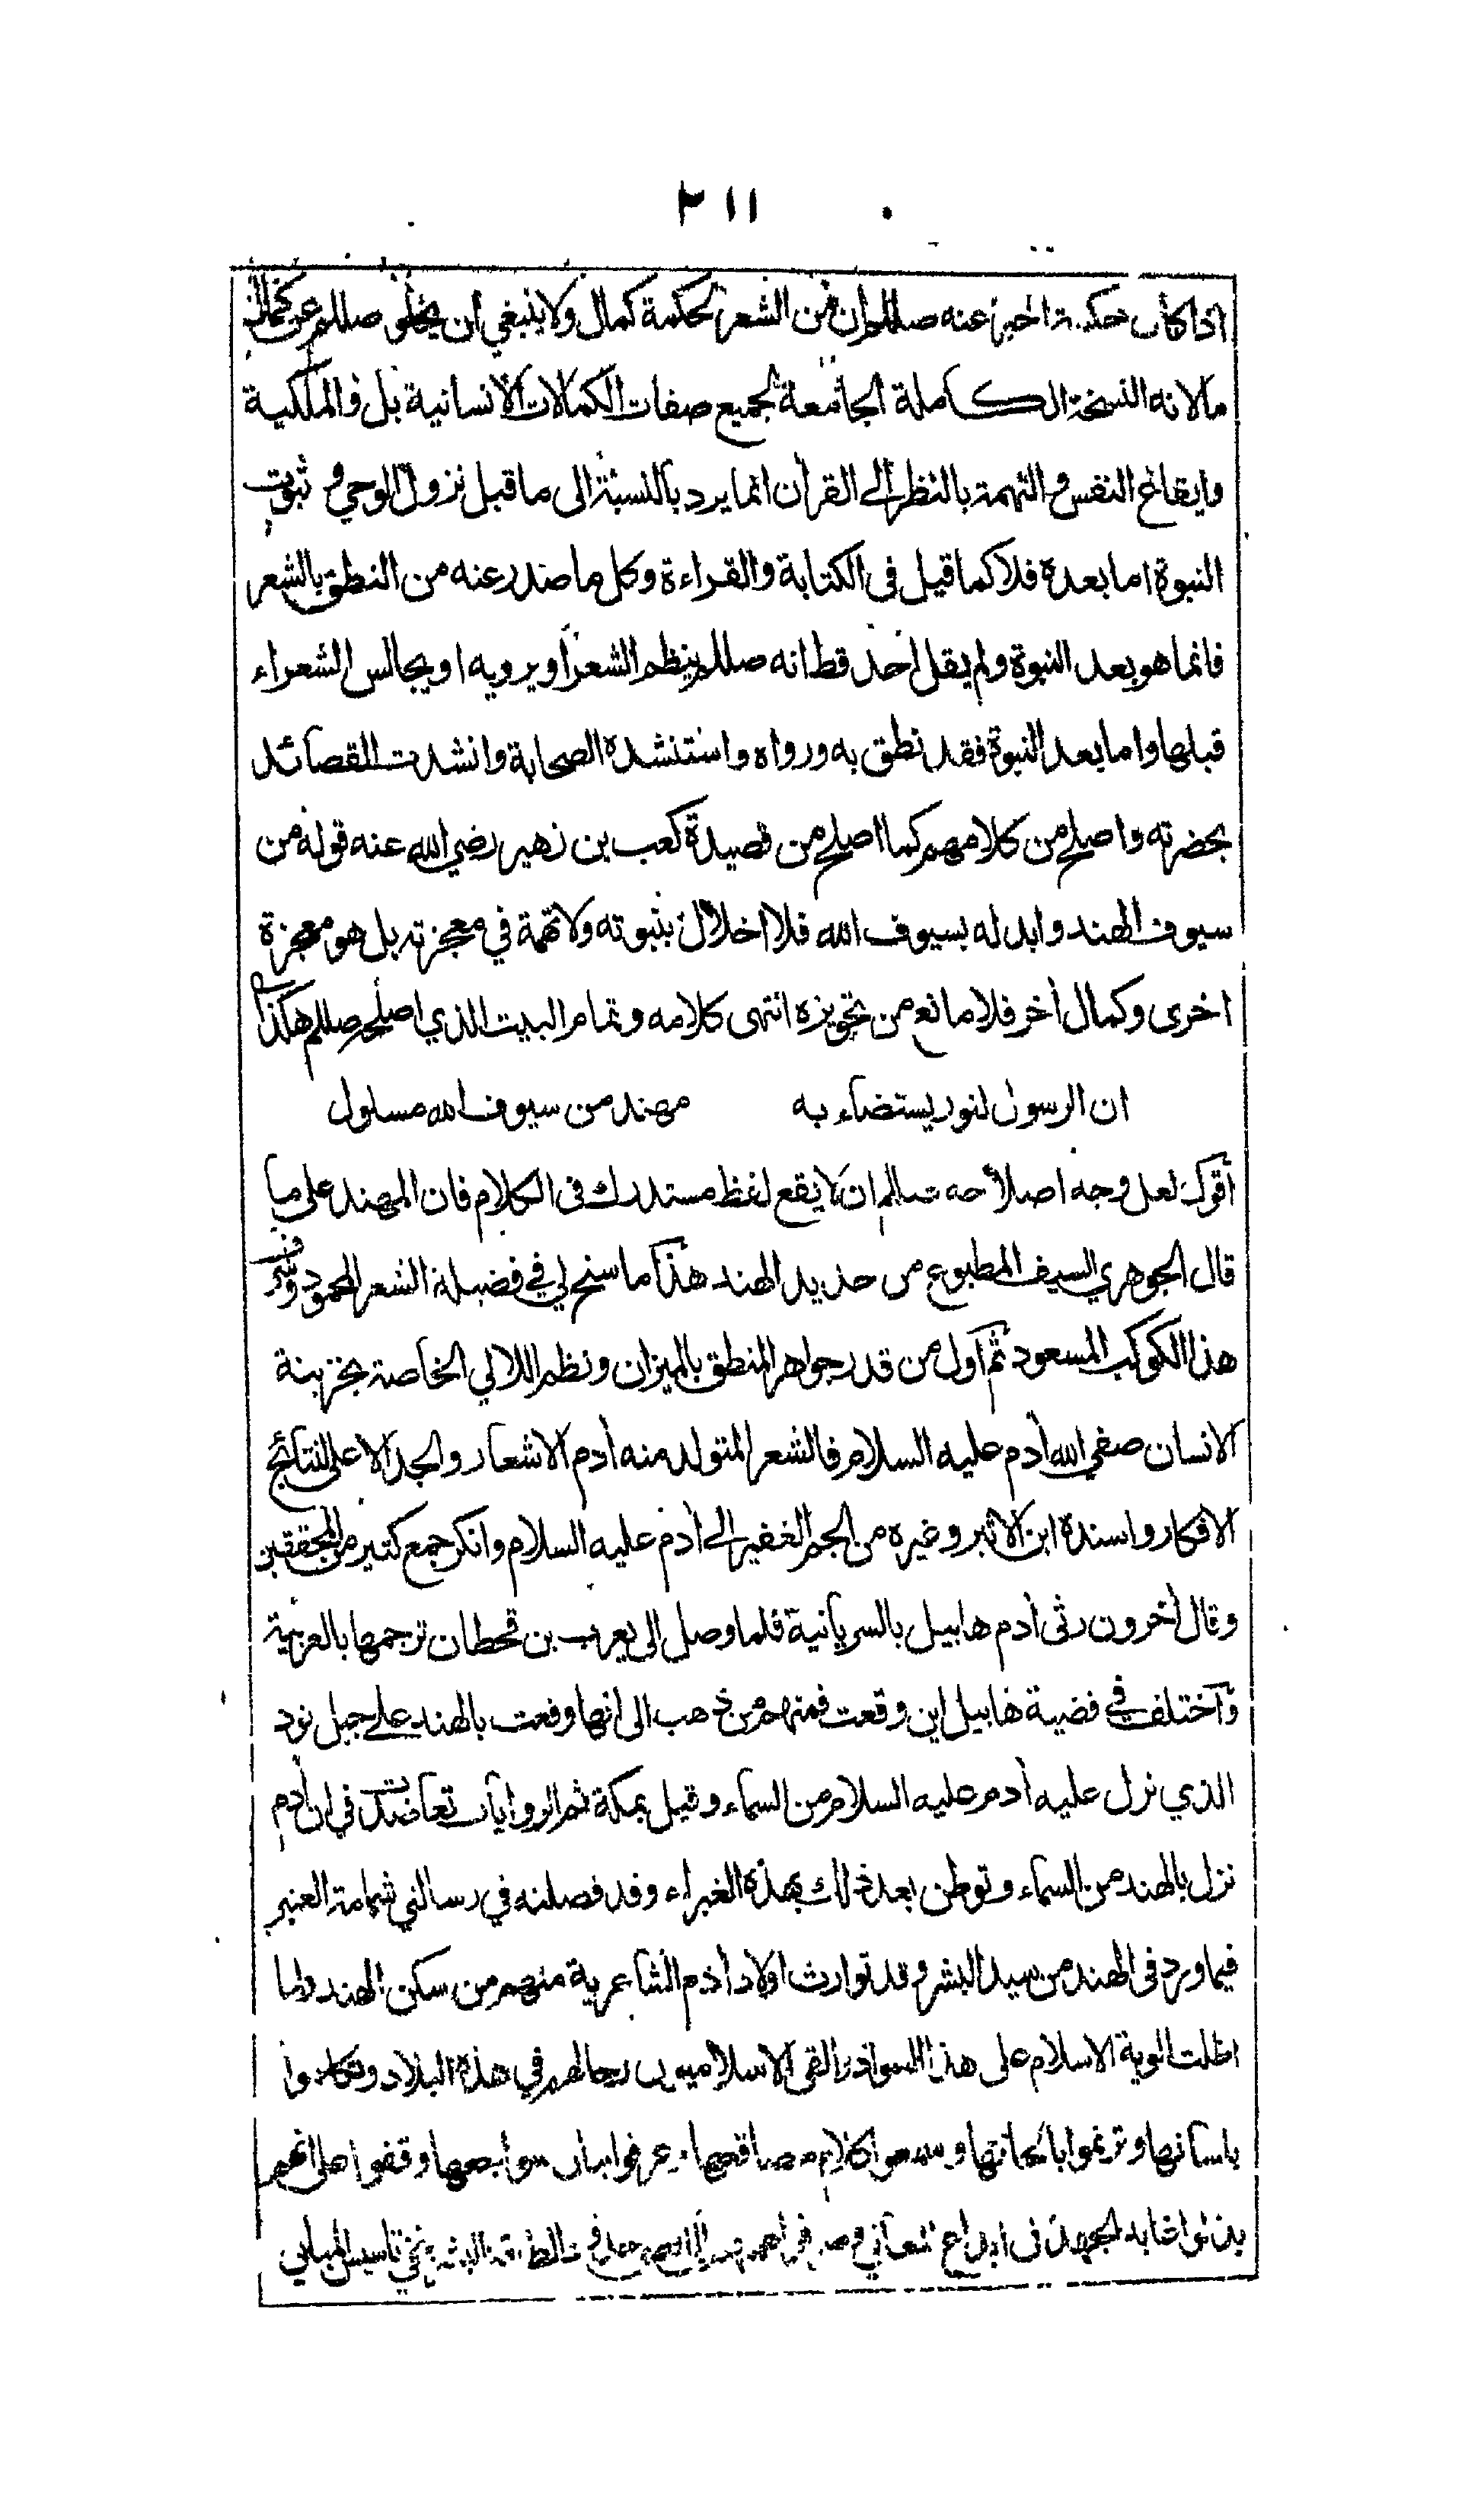 ٢١١
اذا كان حكمة اخبرا عنه صللم ان من الشعر لحكمة كمال ولا ينبغي ان يخلو صللم عن كمال
ما لانه النسخة الكاملة الجامعة لجميع صفات الكمالات الانسانية بل والملكية
وايقاع النقص والتهمة بالنظر الى القرأن انما يرد بالنسبة الى ما قبل نزول الوحي و ثبوت
النبوة اما بعده فلا كما قيل فى الكتابة والقراءة وكل ما صدر عنه من النطق بالشعر
فانما هو بعد النبوة ولم يقل احد قط انه صللم ينظم الشعر او يرويه او يجالس الشعراء
قبلها واما بعد النبوة فقد نطق به ورواه واستنشده الصحابة وانشدت القصائد
بحضرته واصلح من كلامهم كما اصلح من قصيدة كعب بن زهير رضي الله عنه قوله من
سيوف الهند وابدله بسيوف الله فلا اخلال بنبوته ولا تهمة في معجزته بل هو معجزة
اخرى وكمال أخر فلا مانع من تجويزه انتهى كلامه وتمام البيت الذي اصلحه صللم هكذا
ان الرسول لنور يستضاء به مهند من سيوف الله مسلول
أقول لعل وجه اصلاحه صللم ان لا يقع لفظ مستدرك فى الكلام فان المهند على ما
قال الجوهري السيف المطبوع من حديد الهند هذا ما سنح لي في فضيلة الشعر المحمود وشرف
هذا الكوكب المسعود ثم اول من قدر جواهر المنطق بالميزان ونظم اللالي الخاصة بخزينة
الانسان صفي الله أدم عليه السلام فالشعر المتولد منه أدم الاشعار والجد الاعلى لنتائج
الافكار واسنده ابن الاثير وغيره من الجم الغفير الى أدم عليه السلام وانكر جمع كثير من المحققين
وقال أخرون رثى أدم هابيل بالسريانية فلما وصل الى يعرب بن قحطان ترجمها بالعربية
وآختلف في قضية هابيل اين وقعت فمنهم من ذهب الى انها وقعت بالهند على جبل نود
الذي نزل عليه أدم عليه السلام من السماء وقيل بمكة ثم الروايات تعاضدت في ان أدم
نزل بالهند من السماء وتوطن بعد ذلك بهذه الغبراء وقد فصلته في رسالتي شمامة العنبر
فيما ورد فى الهند من سيد البشر وقد توارث اولاد أدم الشاعرية منهم من سكن الهند ولما
اظلت الوية الاسلام على هذا السواد والقى الاسلاميون رحالهم في هذه البلاد وتكلموا
بلسانها وترنموا بالحانها وسمعوا كلام مصاقعها وعرفوا سوابقها وقفوا على انهم
بذلوا غاية الجهد فى ابداع المعاني تاسيس المباني